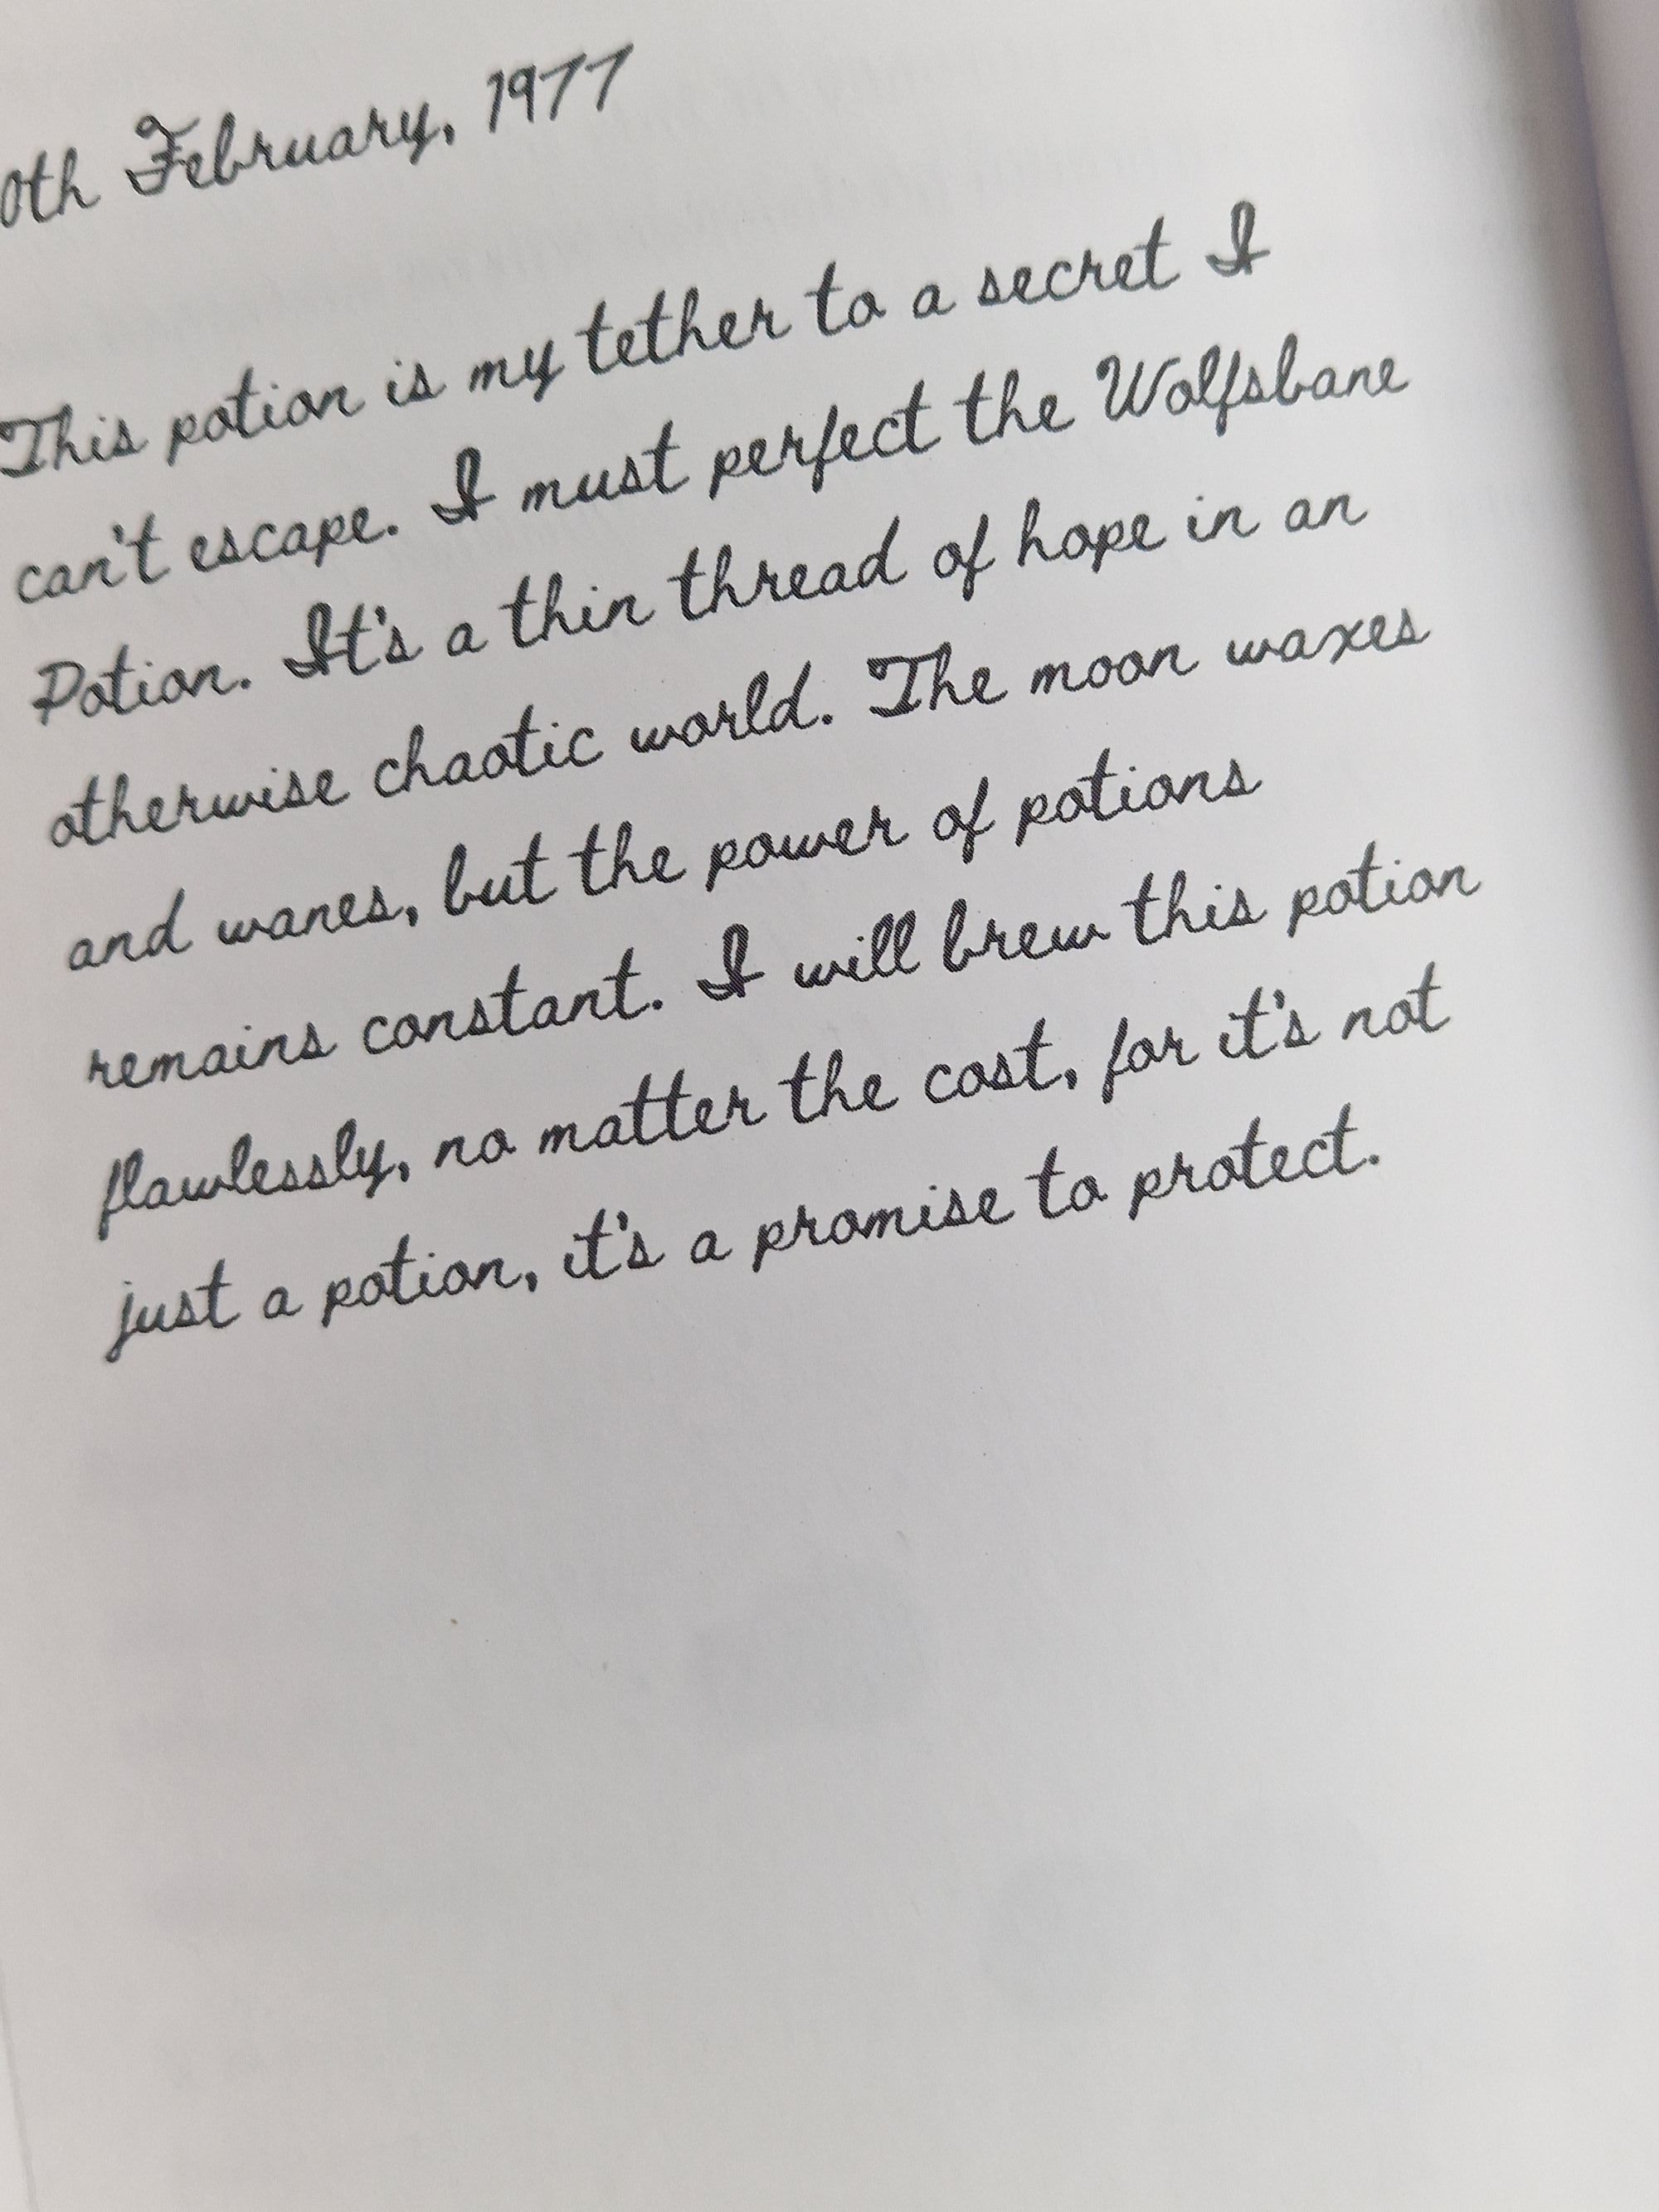 0th February, 1977
This potion is my tether to a secret I
can't escape. I must perfect the Wolfsbane
Potion. It's a thin thread of hope in an
otherwise chaotic world. The moon waxes
and wanes, but the power of potions
remains constant. I will brew this potion
flawlessly, no matter the cost, for it's not
just a potion, it's a promise to protect.